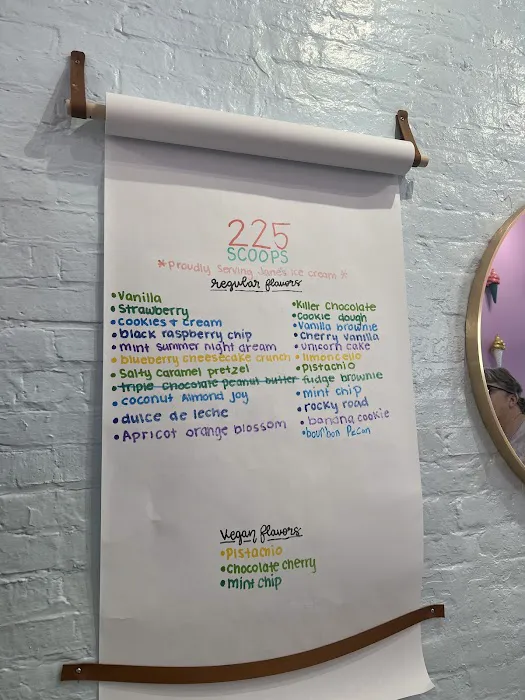 225
SCOOPS
*Proudly Serving Jane's ice cream *
regular flavors
•Vanilla
•Strawberry
•cookies + cream
•black raspberry chip
•mint summer night dream
•blueberry cheesecake crunch
•Salty Caramel pretzel
•triple chocolate peanut butter fudge brownie
•coconut Almond Joy
•dulce de leche
•Apricot orange blossom
•Killer Chocolate
•Cookie dough
•Vanilla brownie
•Cherry Vanilla
•unicorn cake
•limoncello
•Pistachio
•mint chip
•rocky road
•banana cookie
•bourbon Pecan
Vegan flavors
•Pistachio
•Chocolate cherry
•mint chip